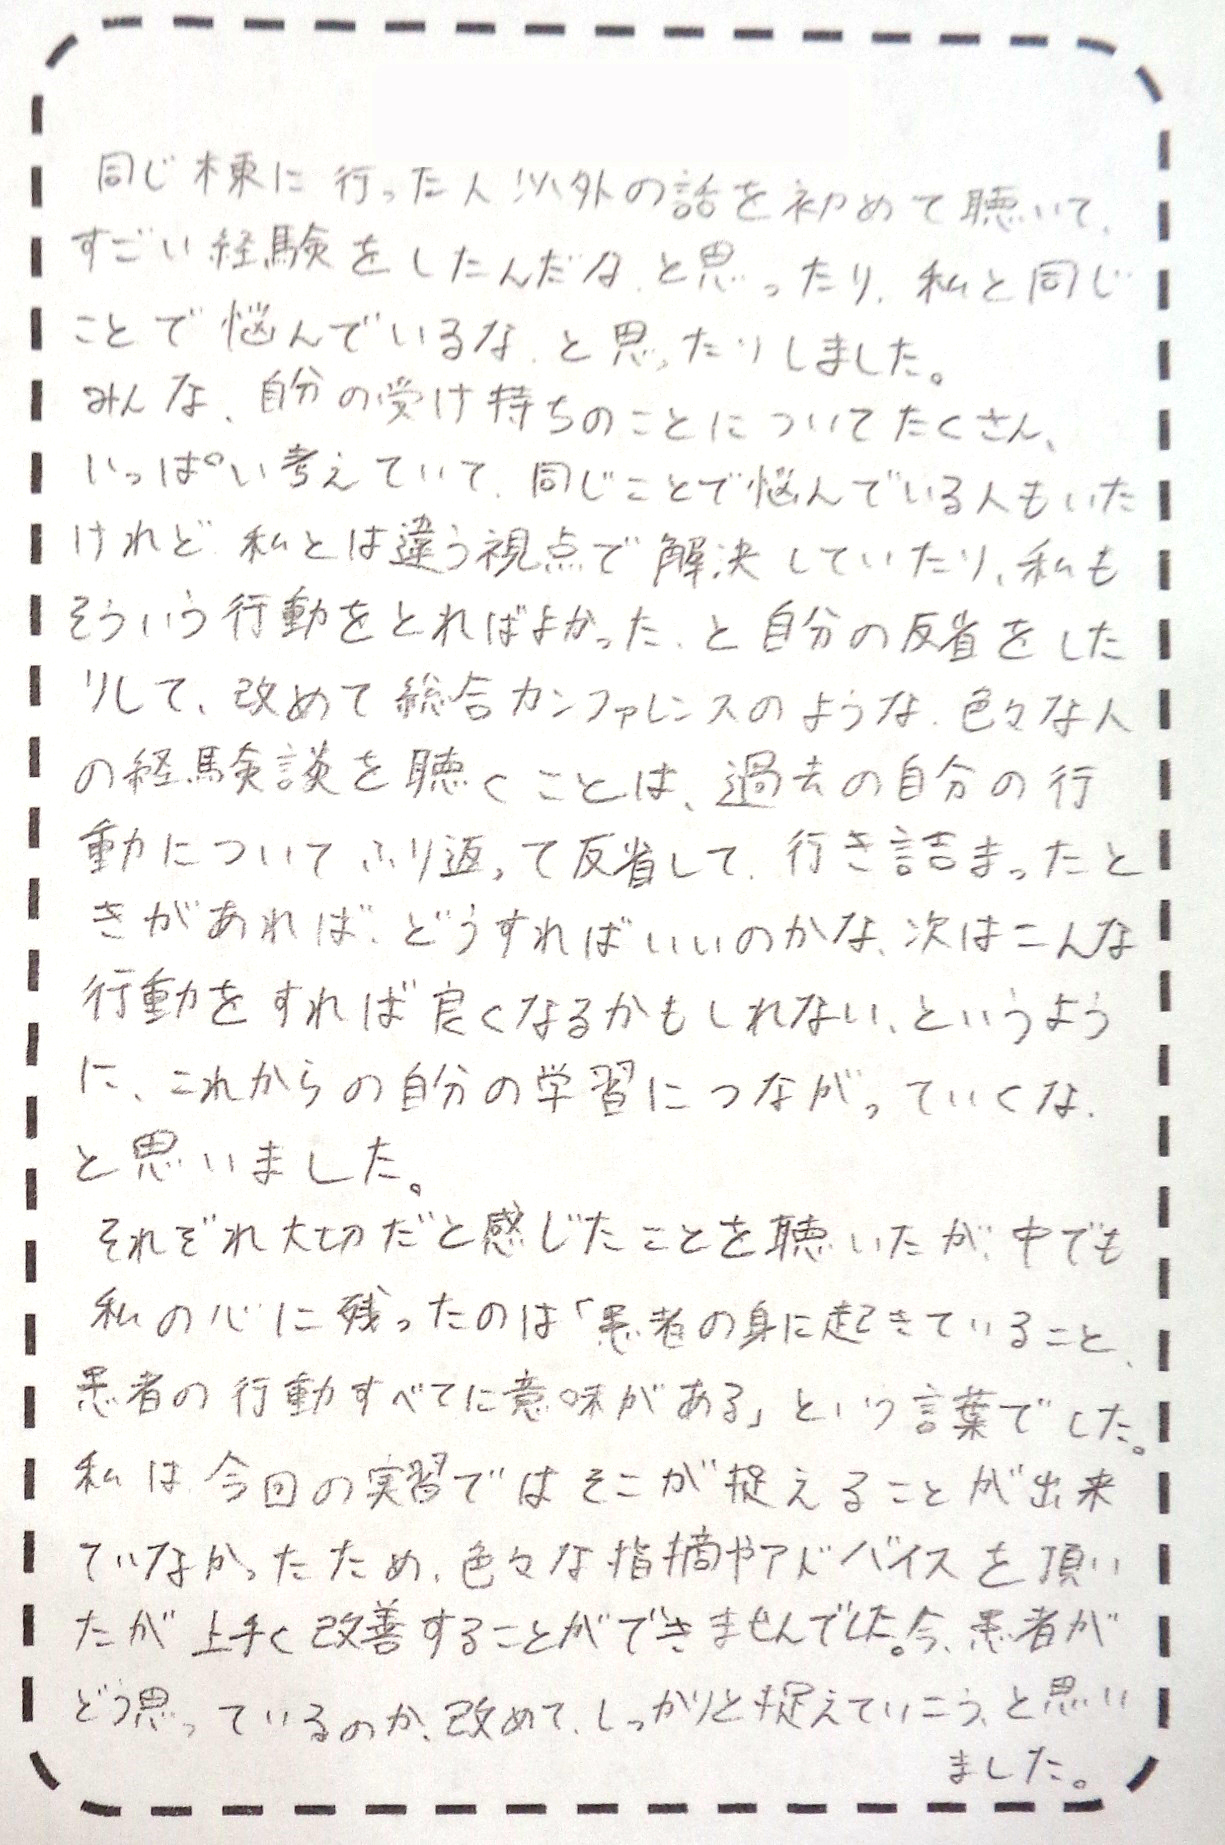 同じ棟に行った人以外の話を初めて聴いて、
すごい経験をしたんだな、と思ったり、私と同じ
ことで悩んでいるな、と思ったりしました。
みんな、自分の受け持ちのことについてたくさん、
いっぱい考えていて、同じことで悩んでいる人もいた
けれど、私とは違う視点で解決していたり、私も
そういう行動をとればよかった、と自分の反省をした
りして、改めて総合カンファレンスのような、色々な人
の経験談を聴くことは、過去の自分の行
動についてふり返って反省して、行き詰まったと
きがあれば、どうすればいいのかな、次はこんな
行動をすれば良くなるかもしれない、というよう
に、これからの自分の学習につながっていくな、
と思いました。
それぞれ大切だと感じたことを聴いたが、中でも
私の心に残ったのは「患者の身に起きていること、
患者の行動すべてに意味がある」という言葉でした。
私は今回の実習ではそこが捉えることが出来
ていなかったため、色々な指摘やアドバイスを頂い
たが上手く改善することができませんでした。今、患者が
どう思っているのか、改めて、しっかりと捉えていこう、と思い
ました。